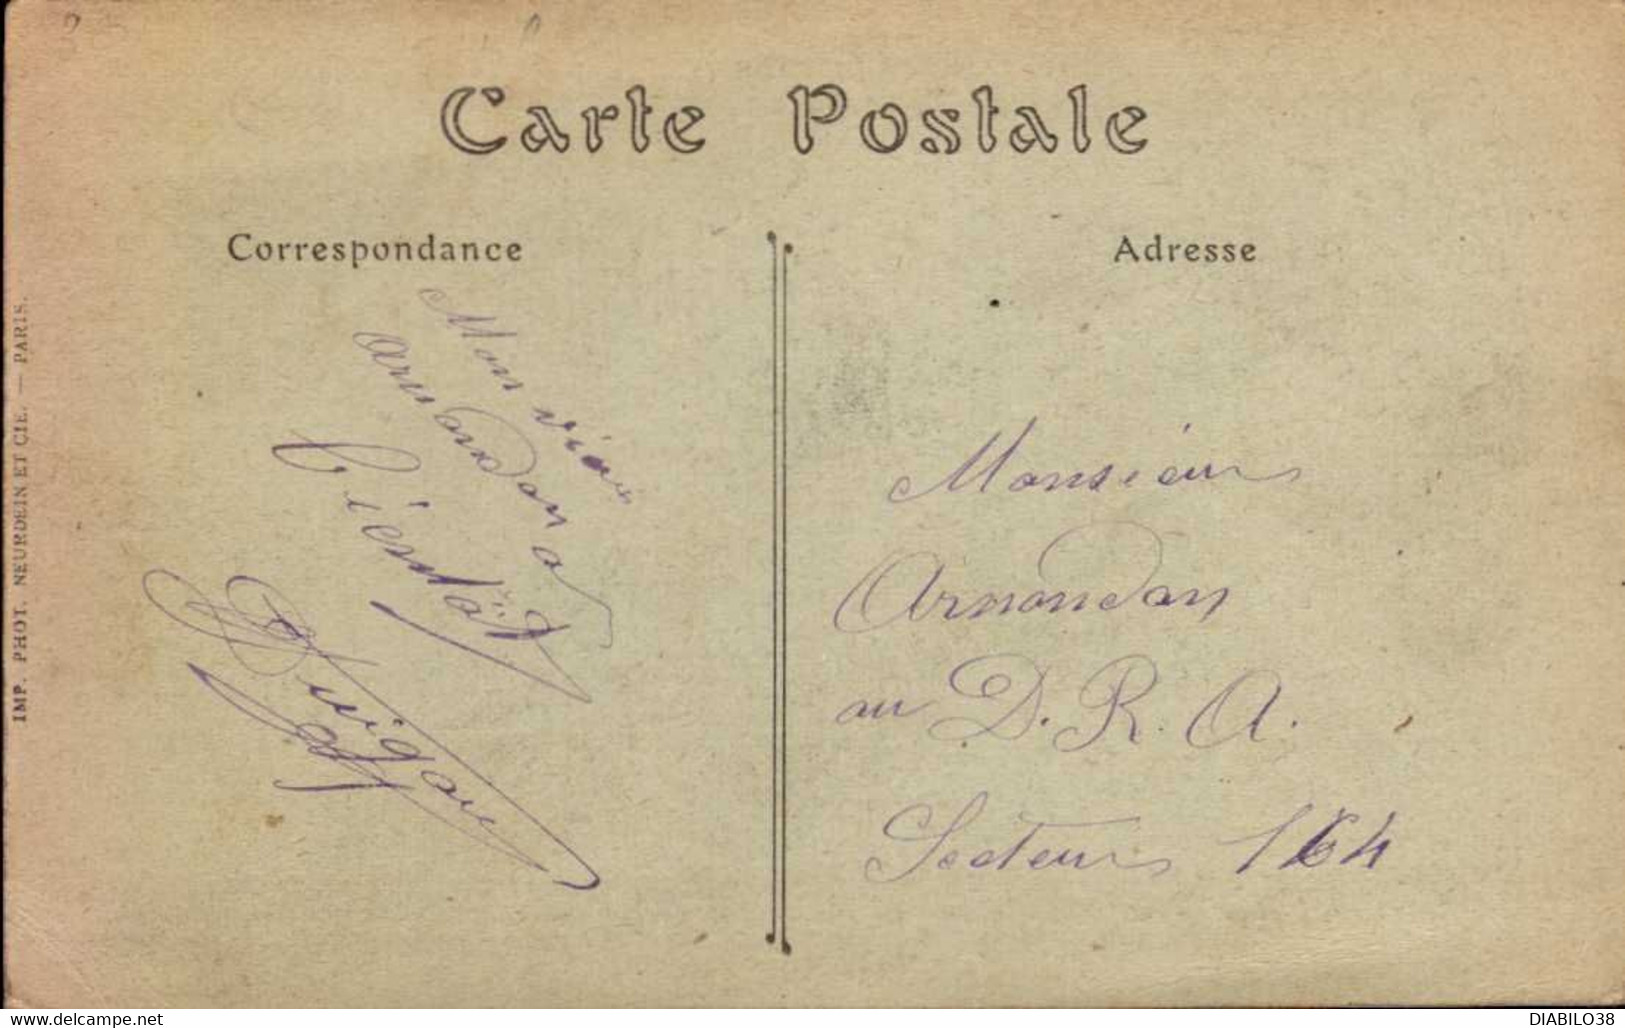 Carte Postale
Correspondance
Adresse
Mon vieux
Arnondon a
Bientôt
IMP. PHOT. NEURDEIN ET CIE. — PARIS.
Monsieur
Arnondon
au D. R. A.
Secteur 164
www.delcampe.net
DIABILO38